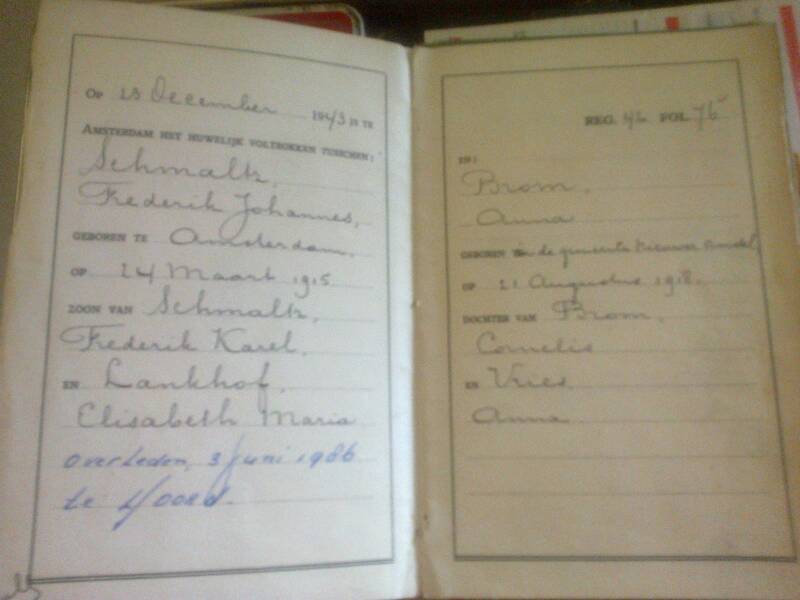 OP 13 December 1943 IS TE
AMSTERDAM HET HUWELIJK VOLTROKKEN TUSSCHEN:
Schmaltz,
Frederik Johannes,
GEBOREN TE Amsterdam,
OP 24 Maart 1915
ZOON VAN Schmaltz,
Frederik Karel,
EN Lankhof,
Elisabeth Maria
overleden 3 juni 1986
te
REG. 4L FOL. 76
EN:
Brom,
Anna
GEBOREN in de gemeente Nieuwer Amstel,
OP 21 Augustus 1918.
DOCHTER VAN Brom,
Cornelis
EN Vries
Anna